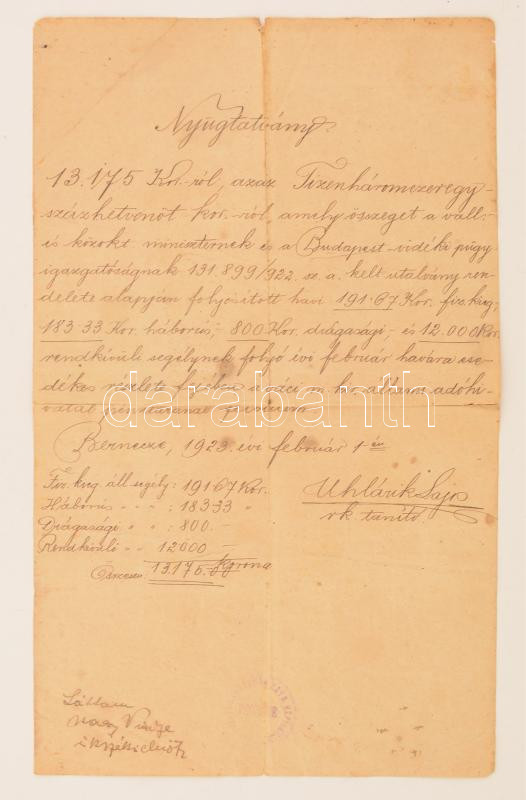 Nyugtatvány.
13.175 Kor.-ról, azaz Tizenháromezeregy-
százhetvenöt kor.-ról, amely összeget a vall.
és közokt. miniszternek és a Budapest-vidéki pügy-
igazgatóságnak 131.899/922. sz. a. kelt utalvány ren-
delete alapján folyósított havi 191.67 Kor. fiz. kieg.,
183.33 Kor. háborús, - 800 Kor. drágasági - és 12.000 Kor.
rendkívüli segélynek folyó évi február havára ese-
dékes részlete fejében a váci m. kir. állami adóhi-
vatal
Bernecze, 1923. évi február 1-én
Fiz. kieg. áll. segély: 191.67 Kor.
Háborús " " : 183.33 "
Drágasági " " : 800.-
Rendkívüli " " 12000 -
Összesen: 13.175.00 Korona
Uhlárik Lajos
rk. tanító
Láttam
Nagy Vincze
isk.széki elnök
darabanth